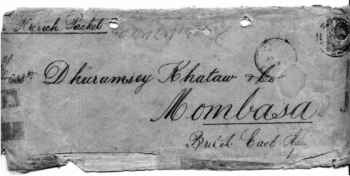 French Packet
Dhurumsey Khataw & Co
Mombasa
British East